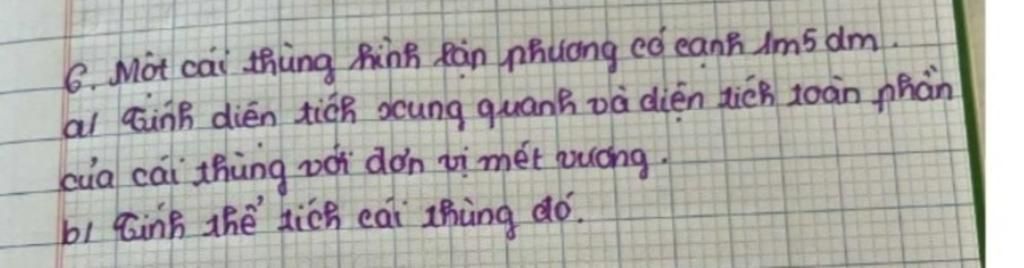 6. Một cái thùng hình lập phương có cạnh 1m5dm.
a/ Tính diện tích xung quanh và diện tích toàn phần
của cái thùng với đơn vị mét vuông.
b/ Tính thể tích cái thùng đó.